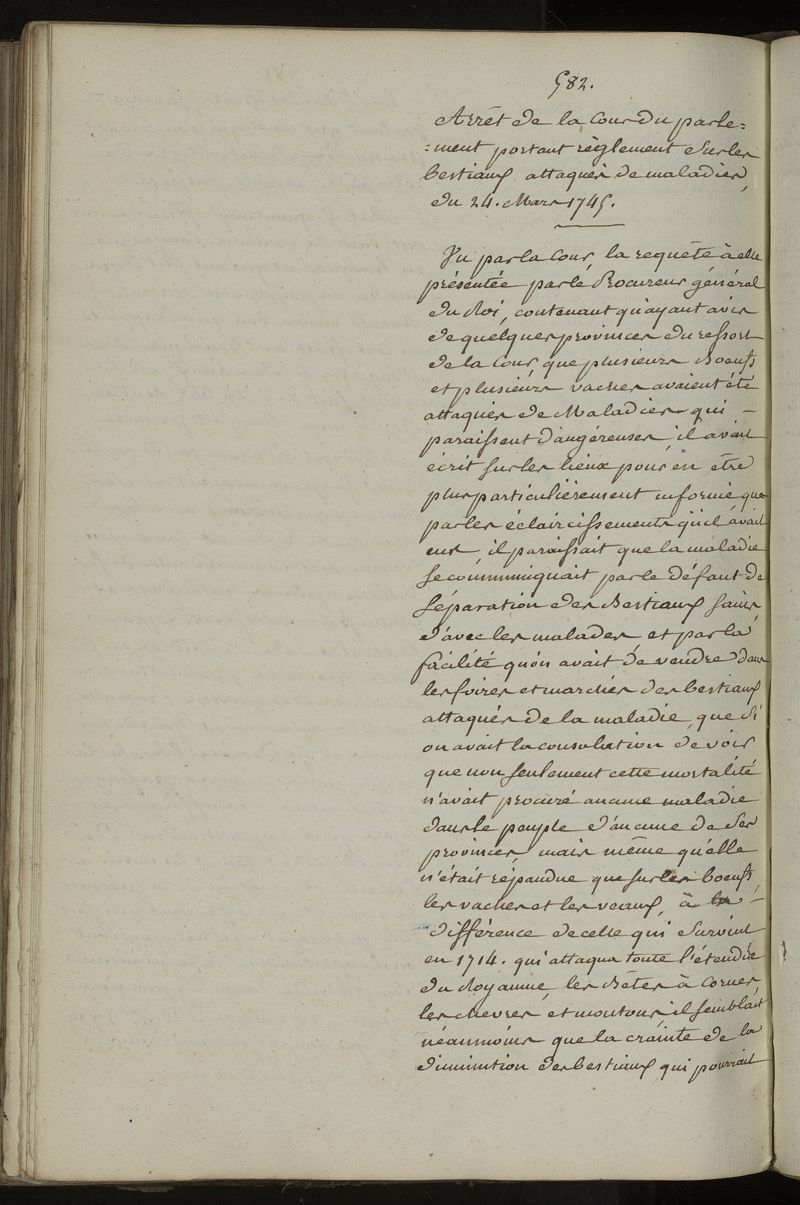 582.
Arrêt de la Cour du parle=
=ment portant règlement sur les
bestiaux attaqués de maladies,
du 24. Mars 1745.
Vu par la Cour, la requête à elle
présentée par le Procureur général
du Roi, contenant qu'ayant avis
de quelques provinces du ressort
de la Cour, que plusieurs Boeufs
et plusieurs vaches avaient été
attaqués de Maladies qui -
paraissent dangéreuses, il avait
écrit sur les lieux pour en être
plus particulièrement informé que
par les éclaircissements qu'il avait
eus, il paraissait que la maladie
se communiquait par le défaut de
séparation des Bestiaux sains,
d'avec les malades, et par la
facilité qu'on avait de vendre dans
les foires et marchés des bestiaux
attaqués de la maladie, que si
on avait la consolation de voir
que non seulement cette mortalité
n'avait procuré aucune maladie
dans le peuple d'aucune de ses
provinces, mais même qu'elle
n'était répandue que sur les boeufs,
les vaches et les veaux, à la -
différence de celle qui survint
en 1714. qui attaqua toute l'étendue
du Royaume, les Bêtes à Cornes,
les chevres, et moutons, il semblait
néanmoins que la crainte de la
diminution des bestiaux qui pourrait